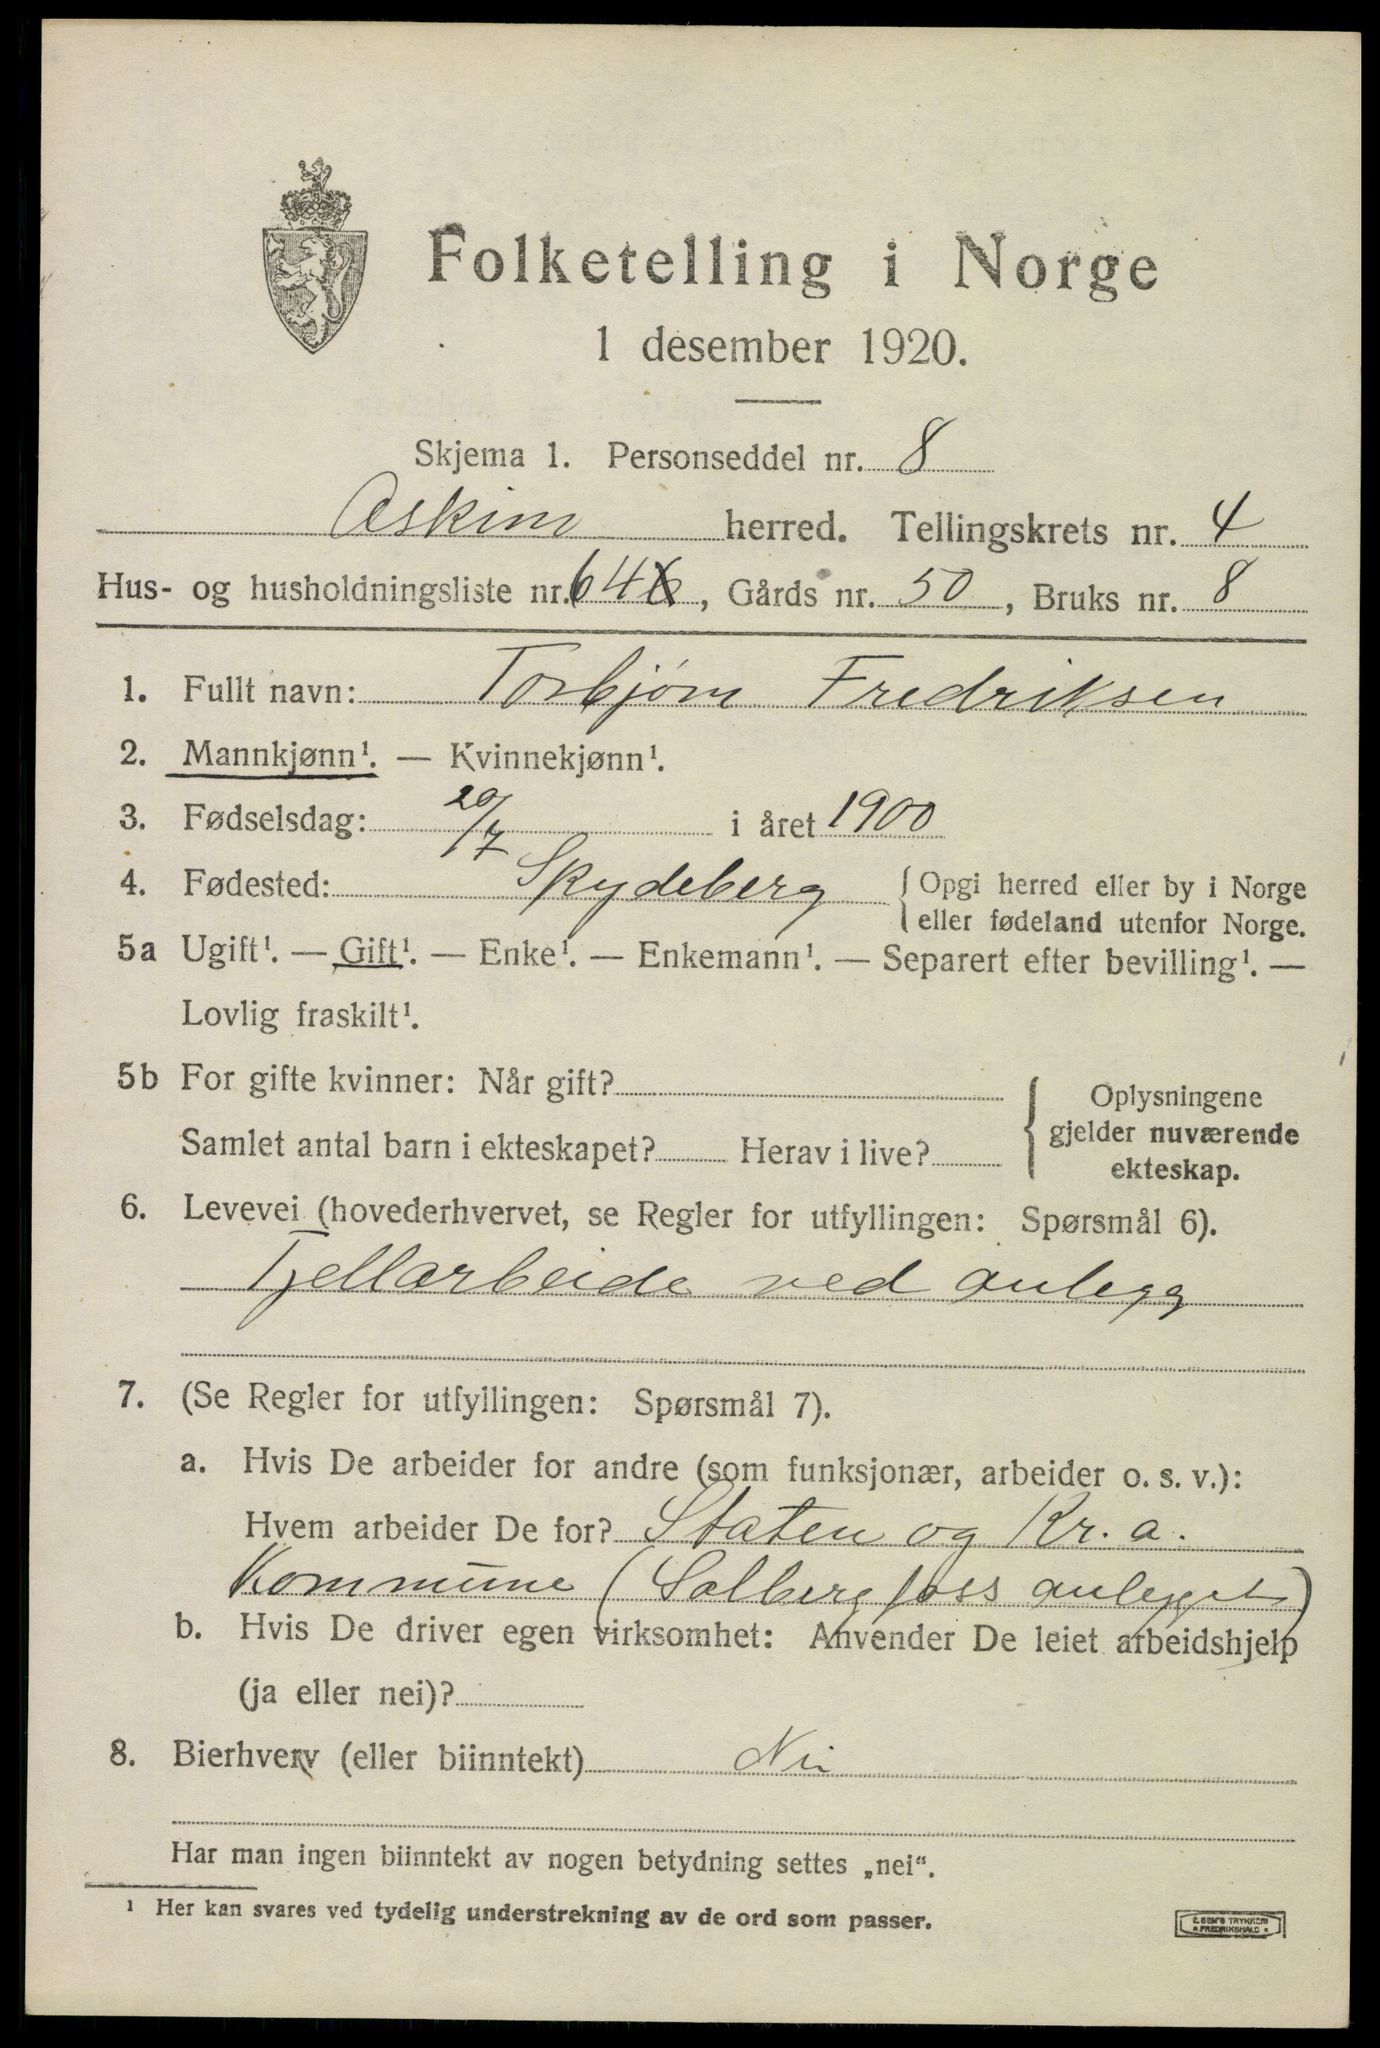 Folketelling i Norge
1 desember 1920.
Skjema 1. Personseddel nr. 8
Askim herred. Tellingskrets nr. 4
Hus- og husholdningsliste nr. 64 , Gårds nr. 50 , Bruks nr. 8
1. Fullt navn: Torbjørn Fredriksen
2. Mannkjønn¹. — Kvinnekjønn¹.
3. Fødselsdag: 20/7 i året 1900
4. Fødested: Skydeberg { Opgi herred eller by i Norge
eller fødeland utenfor Norge.
5a Ugift¹. — Gift¹. — Enke¹. — Enkemann¹. — Separert efter bevilling¹. —
Lovlig fraskilt¹.
5b For gifte kvinner: Når gift? { Oplysningene
gjelder nuværende
ekteskap.
Samlet antal barn i ekteskapet? Herav i live?
6. Levevei (hovederhvervet, se Regler for utfyllingen: Spørsmål 6).
Fjellarbeide ved anlegg
7. (Se Regler for utfyllingen: Spørsmål 7).
a. Hvis De arbeider for andre (som funksjonær, arbeider o. s. v.):
Hvem arbeider De for? Staten og Kr. a.
Kommune (Solbergfoss anlegget)
b. Hvis De driver egen virksomhet: Anvender De leiet arbeidshjelp
(ja eller nei)?
8. Bierhverv (eller biinntekt) Nei
Har man ingen biinntekt av nogen betydning settes „nei“.
¹ Her kan svares ved tydelig understrekning av de ord som passer.
E. SEM'S TRYKKERI
FREDRIKSHALD